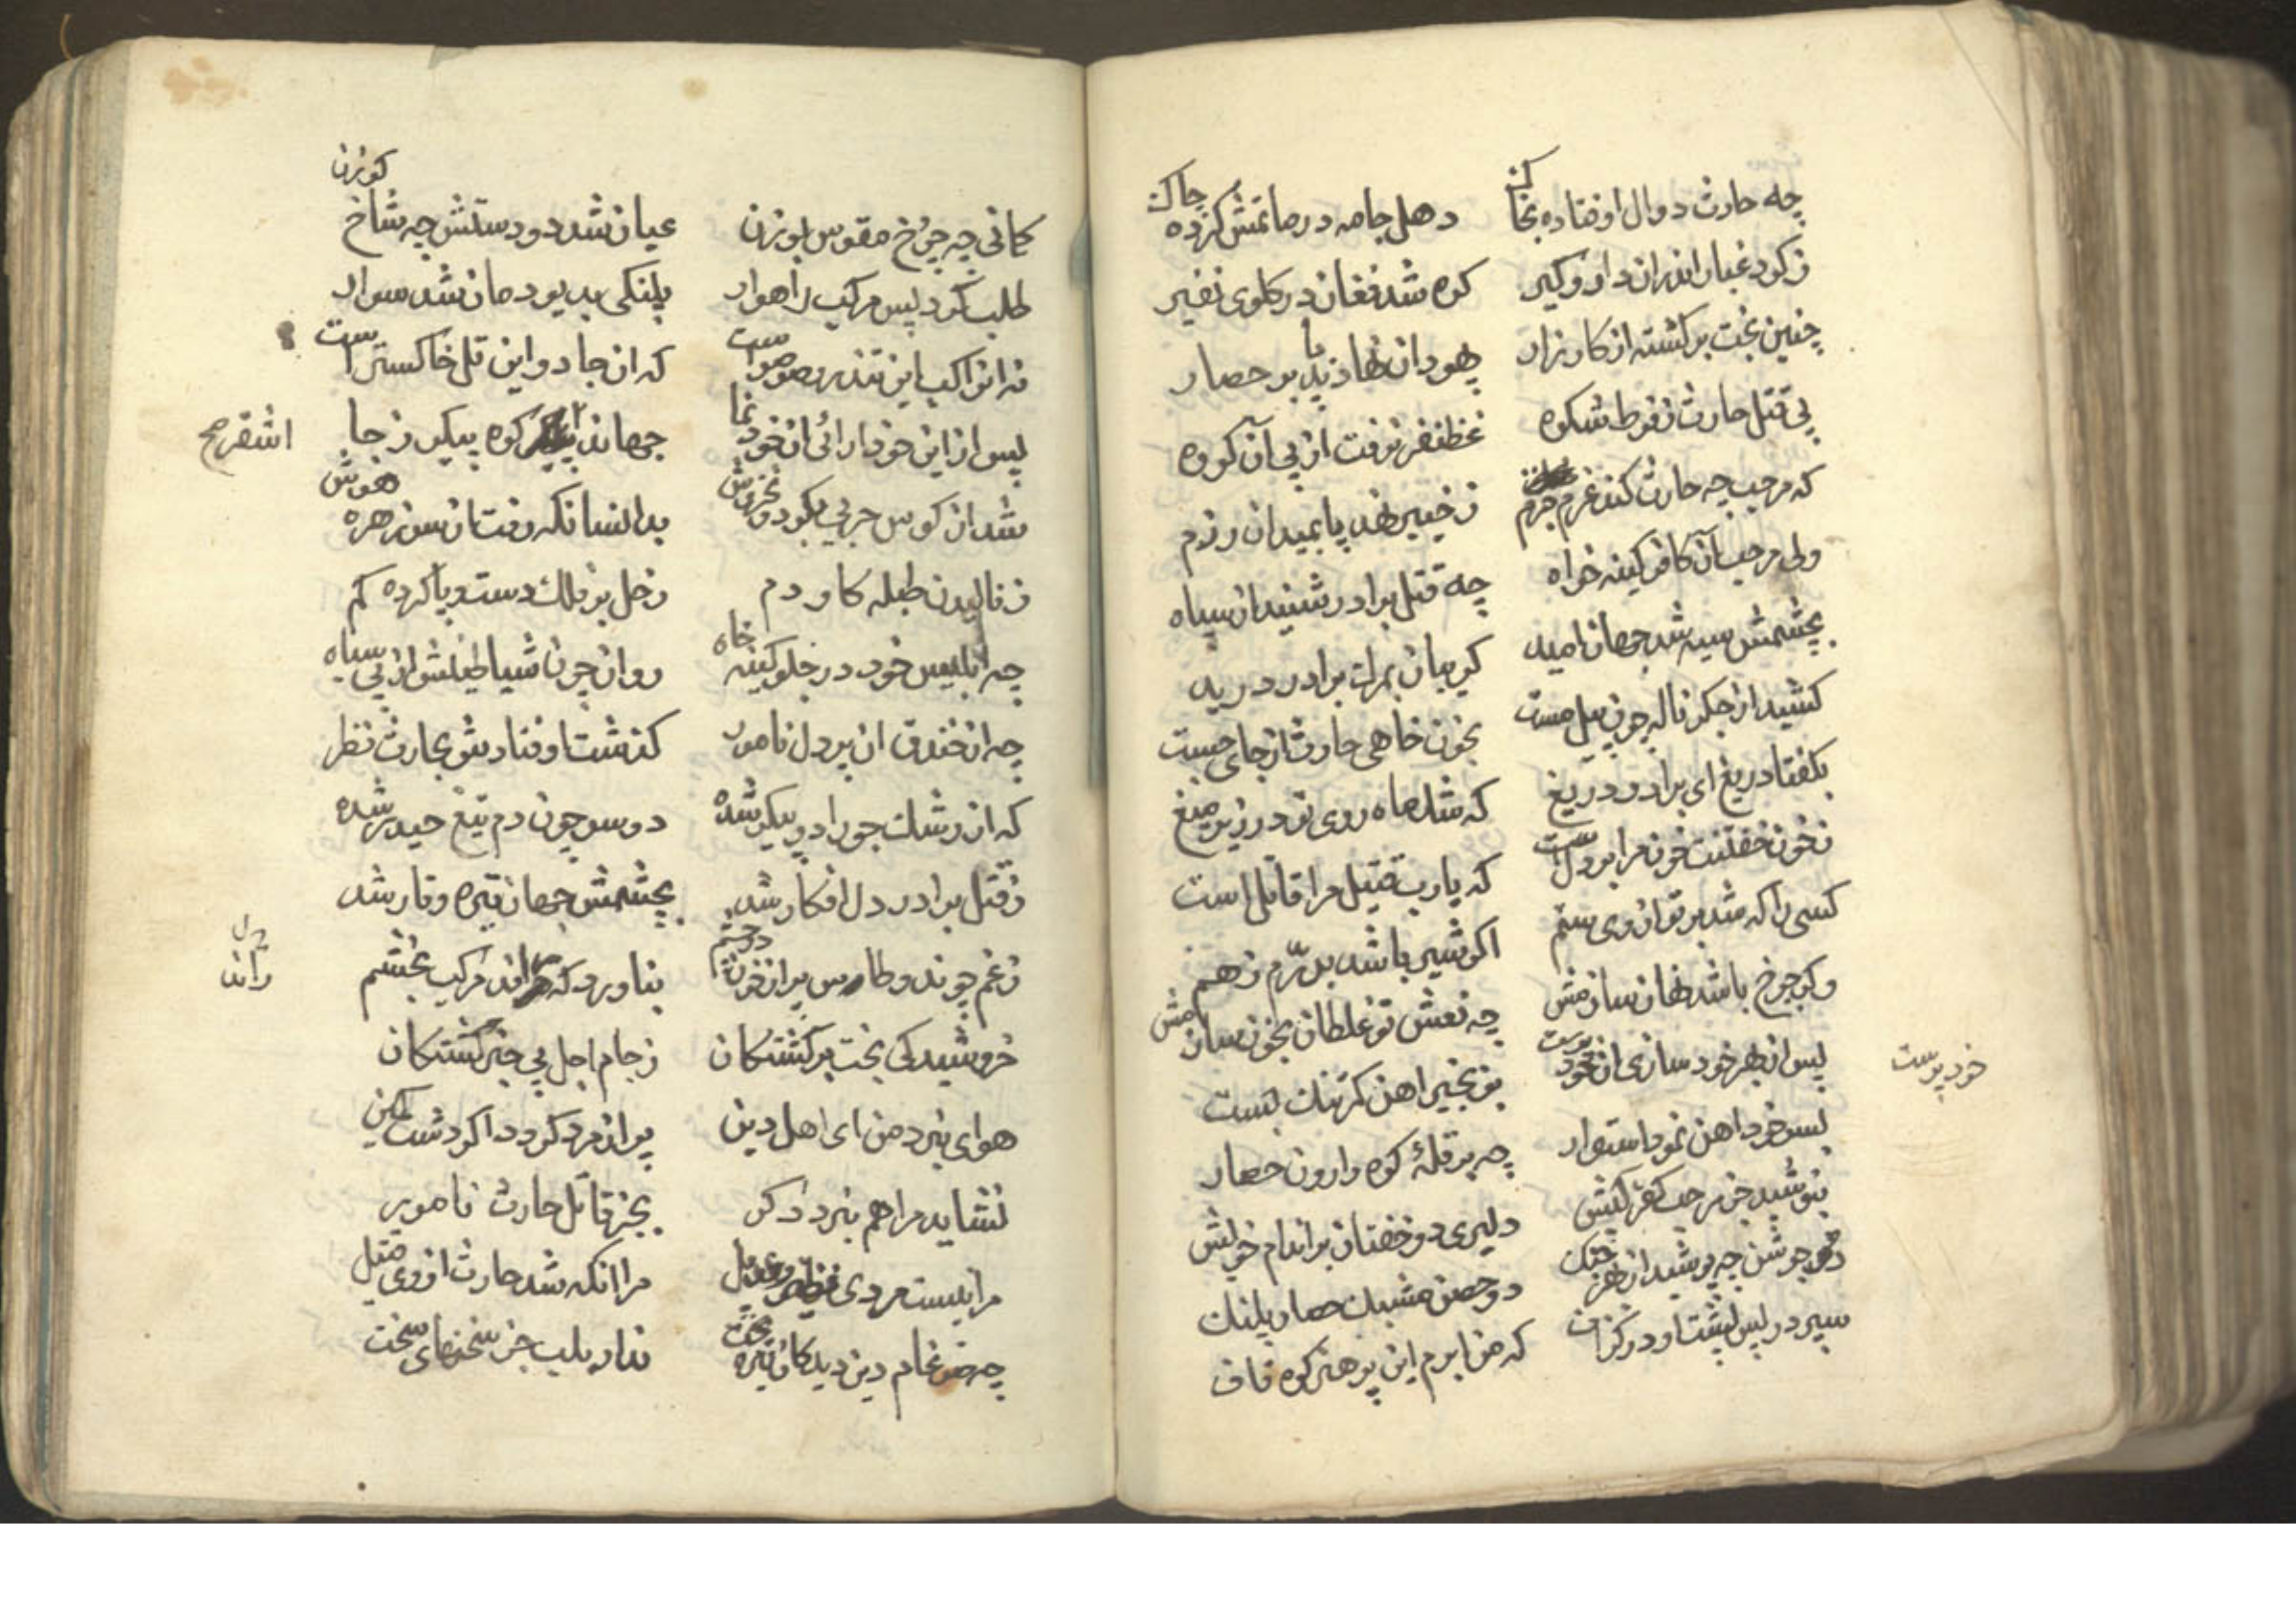 چه حارث دوال اوفتاده بخاک دهل جامه در ماتمش کرده چاک
ز کرد غبار اندران دار و کیر کره شد فغان در کلوی نفیر
چنین بخت برکشته از کارزار یهودان نهادند پا بر حصار
پی قتل حارث ز فرط شکوه غظنفر نرفت از پی آن کروه
که مرحب چه حارث کند عزم جزم ز خیبر نهد پا بمیدان رزم
ولی مرحب آن کافر کینه خواه چه قتل برادر شنید از سپاه
بچشمش سیه شد جهان امید کریبان بمرک برادر درید
کشید از جکر ناله چون پیل مست بخون خاهی حارث از جای جست
بکفتا دریغ ای برادر دریغ که شد ماه روی تو در زیر میغ
ز خون خفتنت خون مرا بر دل است که یا رب قتیل مرا قاتل است
کسی را که شد بر تو از وی ستم اکر شیر باشد بدرّم ز هم
وکر چرخ باشد نهان سازمش چه نعش تو غلطان بخون سازمش
پس از بهر خود سازی ان خود پرست بزنجیر اهن کمر تنک بست
خود پرست
بسر خود اهن نمود استوار چه بر قلهٔ کوه وارون حصار
بپوشید جز مرحب کفر کیش دلیری دو خفتان بر اندام خویش
دو جوشن چه پوشید از بهر جنک دو حصن مشبک حصار پلنک
سپر در پس پشت او در کزاف که من ابرم این پر هنر کوه قاف
کمانی چه چرخ مقوس بوزن عیان شد دو دستش چه شاخ کوزن
طلب کرد پس مرکب راهوار پلنکی به ببر دمان شد سوار
نه این راکب این تندرو صرصر است که از جادو این تل خاکستر است
پس از این خود ارائی ان خود نما جهاند اشقر کوه پیکر ز جا
اشقر صح
شد از کوس حربی بکردون خروش بدانسانکه رفت از سر زهره هوش
ز نالیدن طبله کاو دم زحل بر فلک دست و پا کرده کم
چه ابلیس خود در جلو کینه خاه روان چون شیاطینش از پی سپاه
چه از خندق ان پر دل نامور کذشت اوفتادش بحارث نظر
که از رشک جوزا دو پیکر شده دو سر چون دم تیغ حیدر شده
ز قتل برادر دل افکار شد بچشمش جهان تیره و تار شد
ز غم چون دو طاس پر از خون دو چشم بناورد که راند مرکب بخشم
راند
خروشید کی بخت برکشتکان ز جام اجل بی خبر کشتکان
هوای نبرد من ای اهل دین پر از مرد کردد اکر دشت کین
نشاید مرا هم نبرد دکر بجز قاتل حارث نامور
مرا نیست مردی نظیر و عدیل مر انکه شد حارث از وی قتیل
چه ضرغام دین دید کان تیره بخت ندارد بلب جز سخنهای سخت